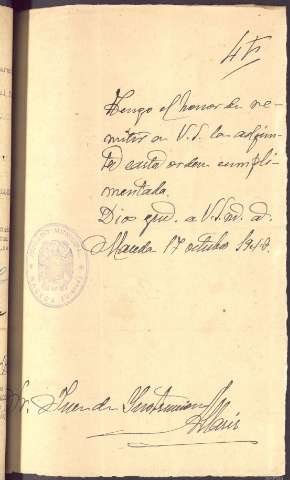 Tengo el honor de re-
mitir a V.S. la adjun-
ta carta orden cumpli-
mentada.
Dios gue. a V.S. m. a.
17 octubre 1940.
Sr. Juez de Instrucción